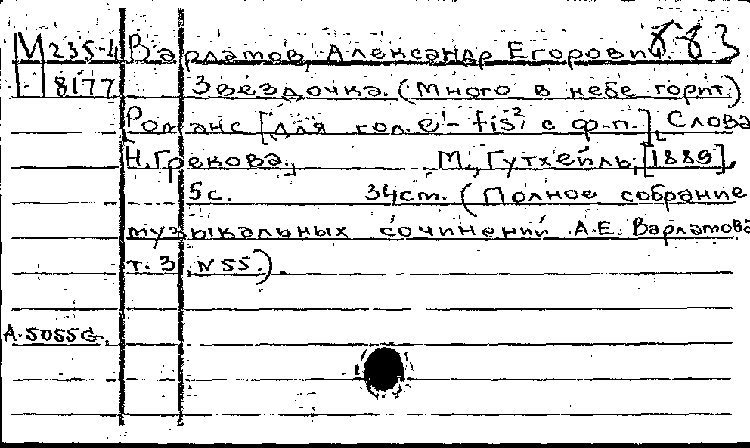 М 235-4 Варламов, Александр Егорович. 883
8177 Звездочка. (Много в небе горит.)
Романс [для гол. e¹- fis² с ф-п.]. Слова
Н. Грекова. М., Гутхейль, [1889],
5 с. 34 cm. (Полное собрание
музыкальных сочинений А.Е. Варламова
т. 3, N 55.).
А. 5055G.